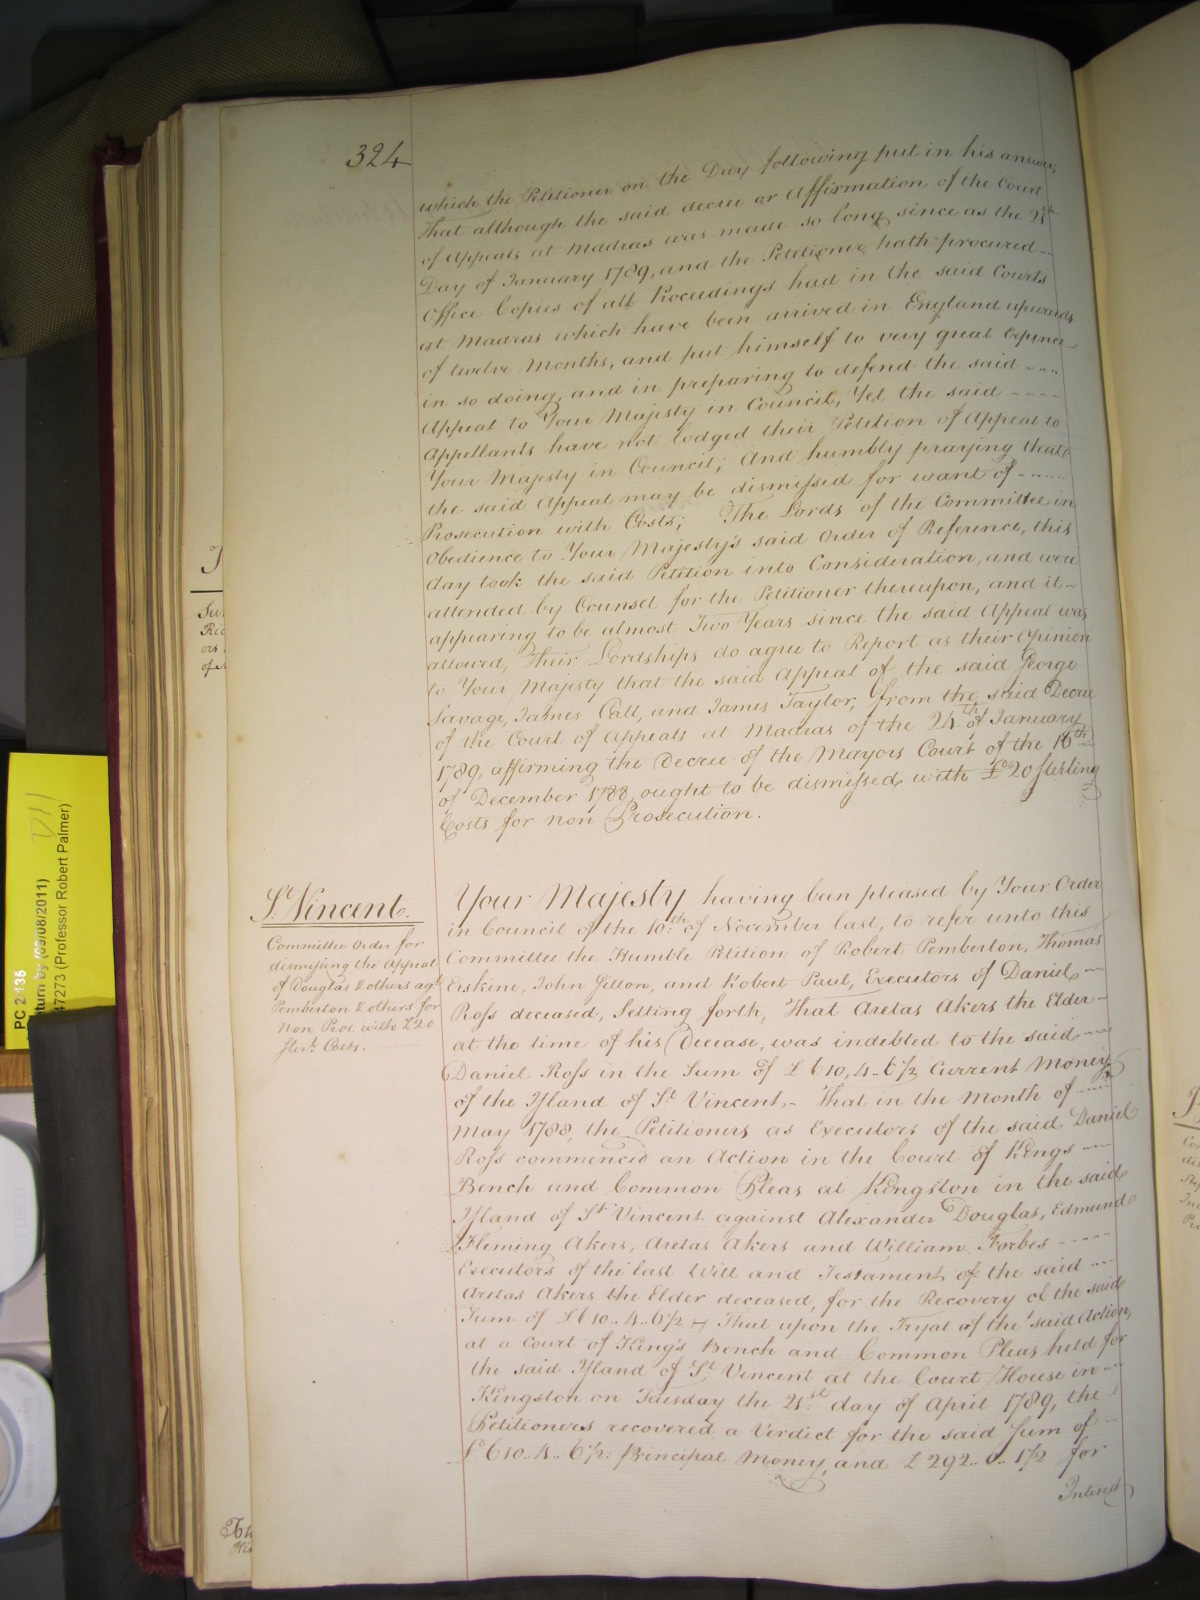 324
which the Petitioner on the Day following put in his answer,
That although the said decree or Affirmation of the Court
of Appeals at Madras was made so long since as the 24th
Day of January 1789, and the Petitioner hath procured
Office Copies of all Proceedings had in the said Courts
at Madras which have been arrived in England upwards
of twelve Months, and put himself to very great Expence
in so doing, and in preparing to defend the said
Appeal to Your Majesty in Council, Yet the said
Appellants have not lodged their Petition of Appeal to
Your Majesty in Council; And humbly praying that
the said Appeal may be dismissed for want of
Prosecution with Costs; The Lords of the Committee in
Obedience to Your Majesty's said Order of Reference, this
day took the said Petition into Consideration, and were
attended by Counsel for the Petitioner thereupon, and it
appearing to be almost Two Years since the said Appeal was
allowed, Their Lordships do agree to Report as their Opinion
to Your Majesty that the said Appeal of the said George
Savage, James Call, and James Taylor, from the said Decree
of the Court of Appeals at Madras of the 24th of January
1789, affirming the Decree of the Mayors Court of the 16th
of December 1788, ought to be dismissed with £20 sterling
Costs for non Prosecution.
St. Vincent.
Committee Order for
dismissing the Appeal
of Douglas & others agt
Pemberton & others for
Non Pros. with £20
sterl. Costs.
Your Majesty having been pleased by Your Order
in Council of the 10th of November last, to refer unto this
Committee the Humble Petition of Robert Pemberton, Thomas
Erskine, John Gillon, and Robert Paul, Executors of Daniel
Ross deceased, Setting forth, That Aretas Akers the Elder
at the time of his Decease, was indebted to the said
Daniel Ross in the Sum of £610,4..6½ Current Money
of the Island of St. Vincent. That in the Month of
May 1788, the Petitioners as Executors of the said Daniel
Ross commenced an Action in the Court of Kings
Bench and Common Pleas at Kingston in the said
Island of St. Vincent against Alexander Douglas, Edmund
Fleming Akers, Aretas Akers and William Forbes
Executors of the last Will and Testament of the said
Aretas Akers the Elder deceased, for the Recovery of the said
Sum of £610..4..6½ That upon the Tryal of the said Action,
at a Court of King's Bench and Common Pleas held for
the said Island of St. Vincent at the Court House in
Kingston on Tuesday the 21st day of April 1789, the
Petitioners recovered a Verdict for the said Sum of
£610..4..6½ Principal Money, and £292..6..1½ for
Interest
PC 2 135
turn by (09/08/2011)
47273 (Professor Robert Palmer)